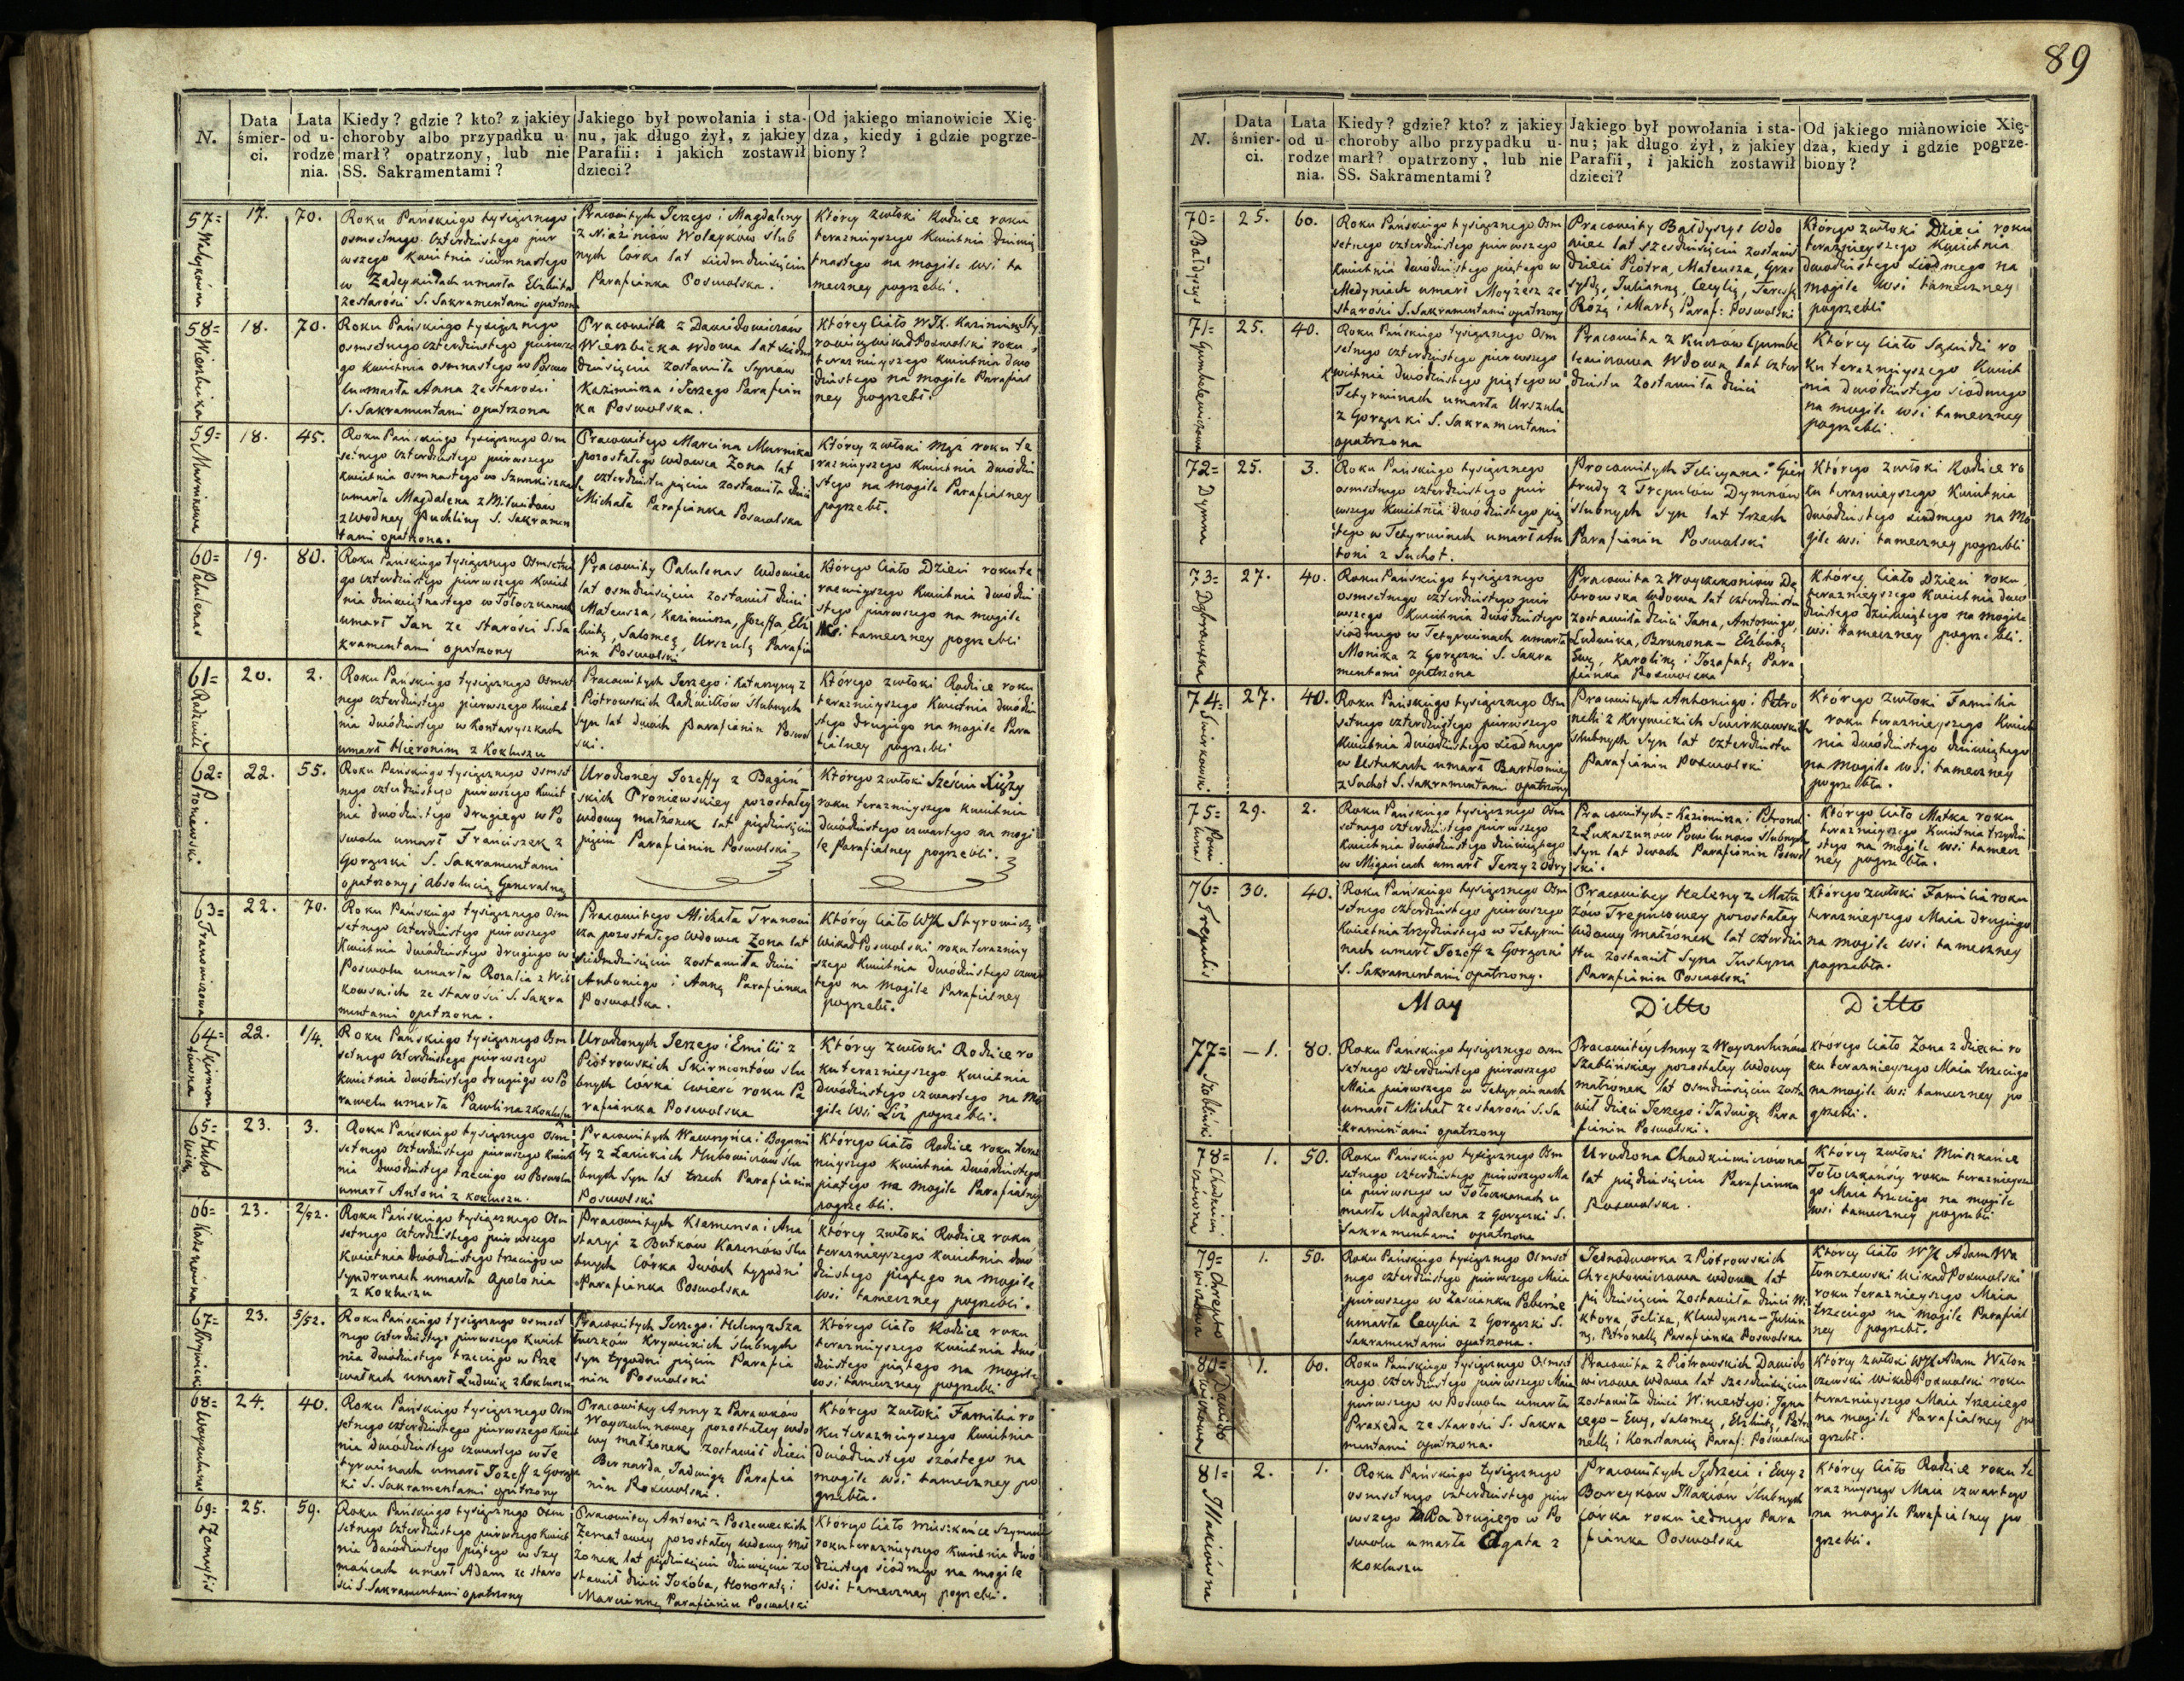 89
N.
Data śmierci.
Lata od urodzenia.
Kiedy? gdzie? kto? z jakiey
choroby albo przypadku u-
marł? opatrzony, lub nie
SS. Sakramentami?
Jakiego był powołania i sta-
nu, jak długo żył, z jakiey
Parafii: i jakich zostawił
dzieci?
Od jakiego mianowicie Xię-
dza, kiedy i gdzie pogrze-
biony?
57=
17.
70.
Roku Pańskiego tysiącznego
osmsetnego czterdziestego pier
wszego kwietnia siedmnastego
umarła Elżbieta
ze starości S. Sakramentami opatrzona
Pracowitych Jerzego i Magdaleny
nych Corka lat siedmdziesięciu
Parafianka Poswolska.
Którey zwłoki Rodzice roku
terazniejszego Kwietnia dziewię
tnastego na mogile wsi ta
meczney pogrzebli.
58= Wierzbicka
18.
70.
Roku Pańskiego tysiącznego
osmsetnego czterdziestego pierwsze
go kwietnia osmnastego w Poswo
lu umarła Anna ze starości
S. Sakramentami opatrzona
Pracowita z Dawidowiczów
Wierzbicka wdowa lat siedm
dziesięciu zostawiła Synow
Kazimierza i Jerzego Parafian
ka Poswolska.
Którey Ciało WJX. Kazimierz Sty
rowicz wikad Poswolski roku
terazniejszego kwietnia dwu
dziestego na mogile Parafial
ney pogrzebł.
59= Murnikowa
18.
45.
Roku Pańskiego tysiącznego Osm
setnego czterdziestego pierwszego
kwietnia osmnastego w
umarła Magdalena z
z wodney Puchliny S. Sakramen
tami opatrzona.
Pracowitego Marcina Murnika
pozostałego wdowca Żona lat
czterdziestu pięciu zostawiła dzieci
Michała Parafianka Poswolska
Którey zwłoki Mąż roku te
raznieyszego Kwietnia dwudzie
stego na mogile Parafialney
pogrzebł.
60= Patulenas
19.
80.
Roku Pańskiego tysiącznego Osmsetne
go czterdziestego pierwszego Kwiet
nia dziewiętnastego w Tołoczkanach
umarł Jan ze Starości S. Sa
kramentami opatrzony
Pracowity Patulenas wdowiec
lat osmdziesięciu zostawił dzieci
Mateusza, Kazimierza, Jozeffa Elż
bietę, Salomeę, Urszulę Parafia
nin Poswolski
Którego Ciało Dzieci roku te
raznieyszego Kwietnia dwudzie
stego pierwszego na mogile
wsi tameczney pogrzebli
61= Radziwił
20.
2.
Roku Pańskiego tysiącznego Osmset
nego czterdziestego pierwszego Kwiet
nia dwudziestego w Kontaryszkach
umarł Hieronim z Kokluszu
Pracowitych Jerzego i Katarzyny z
Piotrowskich Radziwiłłów Slubnych
syn lat dwuch Parafianin Poswol
ski.
Którego zwłoki Rodzice roku
teraznieyszego Kwietnia dwudzie
stego drugiego na mogile Para
fialney pogrzebli
62= Proniewski
22.
55.
Roku Pańskiego tysiącznego osmset
nego czterdziestego pierwszego Kwiet
nia dwudziestego drugiego w Po
swolu umarł Franciszek z
Gorączki S. Sakramentami
opatrzony i Absolucią Generalną
Urodzoney Jozeffy z Bagiń
skich Proniewskiey pozostałey
wdowy małżonek lat pięćdziesięciu
pięciu Parafianin Poswolski
Którego zwłoki Sześciu Xięży
roku teraznieyszego kwietnia
dwudziestego czwartego na mogi
le Parafialney pogrzebli.
63= Tranowiczowa
22.
70.
Roku Pańskiego tysiącznego Osm
setnego czterdziestego pierwszego
Kwietnia dwudziestego drugiego w
Poswolu umarła Rozalia z Wit
kowskich ze starości S. Sakra
mentami opatrzona.
Pracowitego Michała Tranowi
cza pozostałego wdowca Żona lat
siedmdziesięciu zostawiła dzieci
Antoniego i Annę Parafianka
Poswolska.
Którey Ciało WJX Styrowicz
wikad Poswolski roku teraznie
szego Kwietnia dwudziestego czwar
tego na mogile Parafialney
pogrzebł.
64= Skirmontówna
22.
1/4.
Roku Pańskiego tysiącznego Osm
setnego czterdziestego pierwszego
kwietnia dwudziestego drugiego w Po
rawelu umarła Pawlina z Kokluszu
Urodzonych Jerzego i Emilii z
Piotrowskich Skirmontów slu
bnych Corka cwierć roku Pa
rafianka Poswolska
Którey zwłoki Rodzice ro
ku teraznieyszego Kwietnia
dwudziestego czwartego na Mo
gile Wsi pogrzebli.
65= Hubowicz
23.
3.
Roku Pańskiego tysiącznego Osm
setnego czterdziestego pierwszego Kwiet
nia dwudziestego trzeciego w Poswolu
umarł Antoni z kokluszu.
Pracowitych Wawrzyńca i Bogumi
ły z Hubowiczów slu
bnych Syn lat trzech Parafianin
Poswolski
Którego Ciało Rodzice roku teraz
nieyszego kwietnia dwudziestego
piątego na mogile Parafialney
pogrzebli.
66=
23.
2/52.
Roku Pańskiego tysiącznego Osm
setnego czterdziestego pierwszego
Kwietnia dwudziestego trzeciego w
Syndrunach umarła Apolonia
z Kokluszu
Pracowitych Klemensa i Ana
stazyi z Butków Slu
bnych Corka dwuch tygodni
Parafianka Poswolska
Którey zwłoki Rodzice roku
teraznieyszego kwietnia dwu
dziestego piątego na mogile
wsi tameczney pogrzebli.
67= Krywicki
23.
5/52.
Roku Pańskiego tysiącznego osmset
nego czterdziestego pierwszego Kwiet
nia dwudziestego trzeciego w Prze
wałkach umarł Ludwik z Kokluszu
Pracowitych Jerzego i Heleny z Sza
Krywickich slubnych
syn tygodni pięciu Parafia
nin Poswolski
Którego Ciało Rodzice roku
teraznieyszego kwietnia dwu
dziestego piątego na mogile
wsi tameczney pogrzebli
68= Woyczulanas
24.
40.
Roku Pańskiego tysiącznego Osm
setnego czterdziestego pierwszego Kwiet
nia dwudziestego czwartego w Te
tyrwinach umarł Jozeff z Gorącz
ki S. Sakramentami opatrzony
Pracowitey Anny z Parawków
Woyczulanowey pozostałey wdo
wy małżonek zostawił dzieci
Bernarda, Jadwigę Parafia
nin Poswolski.
Którego zwłoki Familia ro
ku teraznieyszego kwietnia
dwudziestego szóstego na
mogile wsi tameczney po
grzebła.
69= Zemytis
25.
59.
Roku Pańskiego tysiącznego Osm
setnego czterdziestego pierwszego Kwiet
nia dwudziestego piątego w Szy
mańcach umarł Adam ze staro
ści S. Sakramentami opatrzony
Pracowitey Antoni z
pozostałey wdowy Mał
żonek lat pięćdziesięciu dziewięciu zo
stawił dzieci Jakóba, Honoratę i
Maryannę Parafianin Poswolski
Którego Ciało mieszkańce Szymanc
roku teraznieyszego kwietnia dwu
dziestego siódmego na mogile
wsi tameczney pogrzebli.
N.
Data śmierci.
Lata od urodzenia.
Kiedy? gdzie? kto? z jakiey
choroby albo przypadku u-
marł? opatrzony, lub nie
SS. Sakramentami?
Jakiego był powołania i sta-
nu; jak długo żył, z jakiey
Parafii, i jakich zostawił
dzieci?
Od jakiego mianowicie Xię-
dza, kiedy i gdzie pogrze-
biony?
70= Bałdyszys
25.
60.
Roku Pańskiego tysiącznego Osm
setnego czterdziestego pierwszego
kwietnia dwudziestego piątego w
Medyniach umarł Moyżesz ze
Starości S. Sakramentami opatrzony
Pracowity Bałdyszys Wdo
wiec lat sześdziesięciu zostawił
dzieci Piotra, Mateusza, Gras
syldę, Juliannę, Cecylię, Teressę
Różę i Martę Paraf: Poswolski
Którego zwłoki Dzieci roku
teraznieyszego Kwietnia
dwudziestego siódmego na
mogile wsi tameczney
pogrzebli
71= Gumbelewiczowa
25.
40.
Roku Pańskiego tysiącznego Osm
setnego czterdziestego pierwszego
kwietnia dwudziestego piątego w
Tetyrwinach umarła Urszula
z Gorączki S. Sakramentami
opatrzona
Pracowita z Gumbe
lewiczowa Wdowa lat czter
dziestu zostawiła dzieci
Którey Ciało Sąsiedzi ro
ku teraznieyszego Kwiet
nia dwudziestego siódmego
na mogile wsi tameczney
pogrzebli.
72= Dymna
25.
3.
Roku Pańskiego tysiącznego
osmsetnego czterdziestego pier
wszego Kwietnia dwudziestego pią
tego w Tetyrwinach umarł An
toni z Suchot.
Pracowitych Felicyana i Gier
trudy z Trepulów Dymnów
ślubnych syn lat trzech
Parafianin Poswolski
Którego zwłoki Rodzice ro
ku teraznieyszego Kwietnia
dwudziestego siodmego na Mo
gile wsi tameczney pogrzebli
73= Dąbrowska
27.
40.
Roku Pańskiego tysiącznego
osmsetnego czterdziestego pier
wszego Kwietnia dwudziestego
siódmego w Tetyrwinach umarła
Monika z Gorączki S. Sakra
mentami opatrzona
Pracowita z Woyczekoniów Dą
browska wdowa lat czterdziestu
zostawiła dzieci Jana, Antoniego,
Ludwika, Brunona – Elżbietę
Ewę, Karolinę i Jozafatę Para
fianka Poswolska
Którey Ciało Dzieci roku
teraznieyszego Kwietnia dwu
dziestego dziewiątego na mogile
wsi tameczney pogrzebli.
74= Swirkowski
27.
40.
Roku Pańskiego tysiącznego Osm
setnego czterdziestego pierwszego
Kwietnia dwudziestego siódmego
w Ustukach umarł Bartłomiey
z Suchot S. Sakramentami opatrzony
Pracowitych Antoniego i Petro
neli z Krywickich Swirkowskich
slubnych Syn lat czterdziestu
Parafianin Poswolski
Którego zwłoki Familia
roku teraznieyszego Kwiet
nia dwudziestego dziewiątego
na mogile wsi tameczney
pogrzebła.
75= Powilunas
29.
2.
Roku Pańskiego tysiącznego Osm
setnego czterdziestego pierwszego
Kwietnia dwudziestego dziewiątego
w Migańcach umarł Jerzy z Odry
Pracowitych Kazimierza i Petronel
z Łukaszunow Powilunow Slubnych
syn lat dwuch Parafianin Poswol
ski.
Którego Ciało Matka roku
teraznieyszego Kwietnia trzydzie
stego na mogile wsi tamecz
ney pogrzebła.
76= Trepulis
30.
40.
Roku Pańskiego tysiącznego Osm
setnego czterdziestego pierwszego
Kwietnia trzydziestego w Tetyrwi
nach umarł Jozeff z Gorączki
S. Sakramentami opatrzony.
Pracowitey Heleny z Matu
zów Trepulowey pozostałey
wdowy małżonek lat czterdzie
stu zostawił Syna Justyna
Parafianin Poswolski
Którego zwłoki Familia roku
teraznieyszego Maia drugiego
na mogile wsi tameczney
pogrzebła.
May
Ditto
Ditto
77= Szabliński
1.
80.
Roku Pańskiego tysiącznego osm
setnego czterdziestego pierwszego
Maia pierwszego w Tetyrwinach
umarł Michał ze starości S. Sa
kramentami opatrzony
Pracowitey Anny z Woyczulunów
Szablińskiey pozostałey wdowy
małżonek lat osmdziesięciu zosta
wił dzieci Jerzego i Jadwigę Para
fianin Poswolski.
Którego Ciało Żona z dziećmi ro
ku teraznieyszego Maia trzeciego
na mogile wsi tameczney po
grzebli.
78= Chodkiewiczówna
1.
50.
Roku Pańskiego tysiącznego Osm
setnego czterdziestego pierwszego Ma
ia pierwszego w Tołoczkanach u
marła Magdalena z Gorączki S.
Sakramentami opatrzona
Urodzona Chodkiewiczówna
lat pięćdziesięciu Parafianka
Poswolska.
Którey zwłoki Mieszkańce
Tołoczkańscy roku teraznieysze
go Maia trzeciego na mogile
wsi tameczney pogrzebli
79= Chreptowiczowa
1.
50.
Roku Pańskiego tysiącznego Osmset
nego czterdziestego pierwszego Maia
pierwszego w Zascianku Poberże
umarła Cecylia z Gorączki S.
Sakramentami opatrzona.
Jednodworka z Piotrowskich
Chreptowiczowa wdowa lat
pięćdziesięciu Zostawiła dzieci Wi
ktora, Felixa, Klaudyusza – Julian
nę, Petronellę Parafianka Poswolska
Którey Ciało WJX Adam Wa
łonczewski wikad Poswolski
roku teraznieyszego Maia
trzeciego na mogile Parafial
ney pogrzebł.
80= Dawidowiczowa
1.
60.
Roku Pańskiego tysiącznego Osmset
nego czterdziestego pierwszego Maia
pierwszego w Poswolu umarła
Praxeda ze starości S. Sakra
mentami opatrzona.
Pracowita z Piotrowskich Dawido
wiczowa wdowa lat sześdziesięciu
zostawiła dzieci Wincentego, Igna
cego – Ewę, Salomeę, Elżbietę, Petro
nellę i Konstancię Paraf: Poswolska
Którey zwłoki WJX Adam Wałon
czewski wikad Poswolski roku
teraznieyszego Maia trzeciego
na mogile Parafialney po
grzebł.
81= Makiówna
2.
1.
Roku Pańskiego tysiącznego
osmsetnego czterdziestego pier
wszego Maia drugiego w Po
swolu umarła Agata z
Kokluszu
Pracowitych Jędrzeia i Ewy z
Boreyków Makiów slubnych
córka roku iednego Para
fianka Poswolska
Którey Ciało Rodzice roku te
raznieyszego Maia czwartego
na mogile Parafialney po
grzebli.